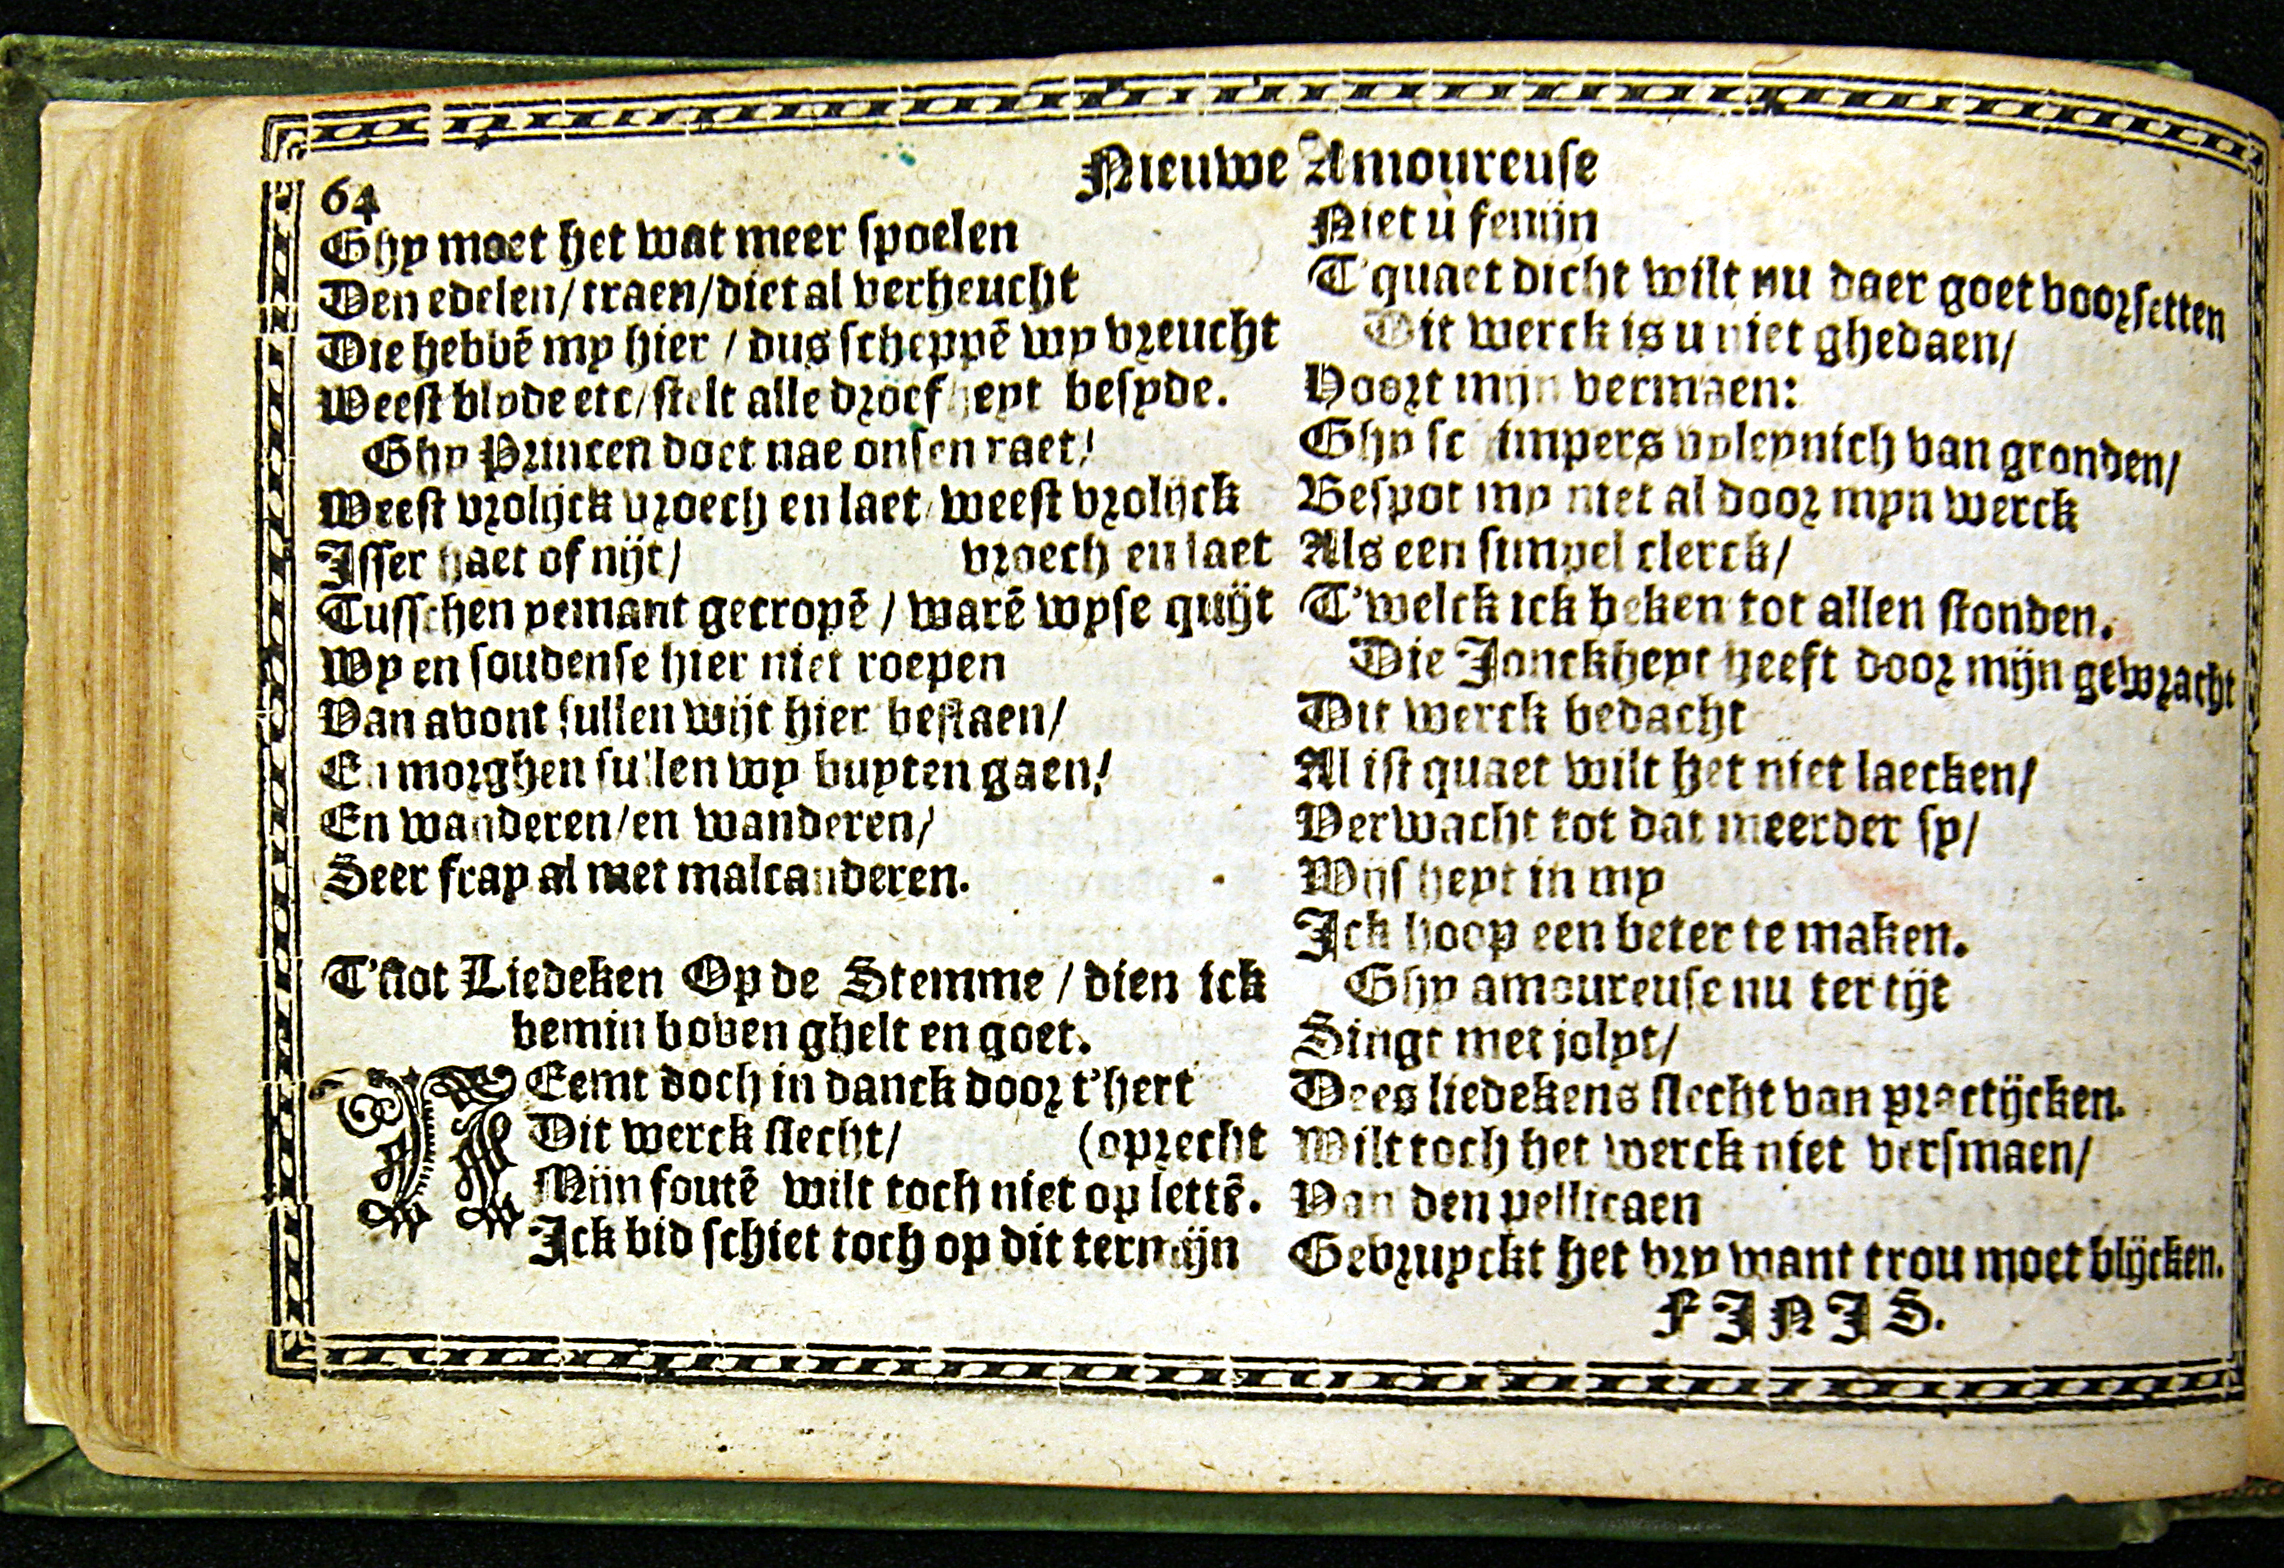 Nieuwe Amoureuse
64
Ghy moet het wat meer spoelen
Den edelen/traen/diet al verheucht
Die hebbē my hier / dus scheppē wy vreucht
Weest blyde etc/stelt alle droefheyt besyde.
Ghy Princen doet nae onsen raet/
Weest vrolijck vroech en laet/weest vrolijck
Isser haet of nijt/ vroech en laet
Tusschen yemant gecropē / warē wyse quijt
Wy en soudense hier niet roepen
Van avont sullen wijt hier bestaen/
En morghen sullen wy buyten gaen/
En wanderen/en wanderen/
Seer fray al met malcanderen.
T'slot Liedeken Op de Stemme / dien ick
bemin boven ghelt en goet.
NEemt doch in danck door t'hert
Dit werck slecht/ (oprecht
Mijn foutē wilt toch niet op lettē.
Ick bid schiet toch op dit termijn
Niet u fenijn
T'quaet dicht wilt nu daer goet voorsetten
Dit werck is u niet ghedaen/
Hoort mijn vermaen:
Ghy schimpers vyleynich van gronden/
Bespot my niet al door myn werck
Als een simpel clerck/
T'welck ick beken tot allen stonden.
Die Jonckheyt heeft door mijn gewracht
Dit werck bedacht
Al ist quaet wilt het niet laecken/
Verwacht tot dat meerder sy/
Wijsheyt in my
Ick hoop een beter te maken.
Ghy amoureuse nu ter tijt
Singt met jolyt/
Dees liedekens slecht van practijcken.
Wilt toch het werck niet versmaen/
Van den pellicaen
Gebruyckt het vry want trou moet blijcken.
FINIS.